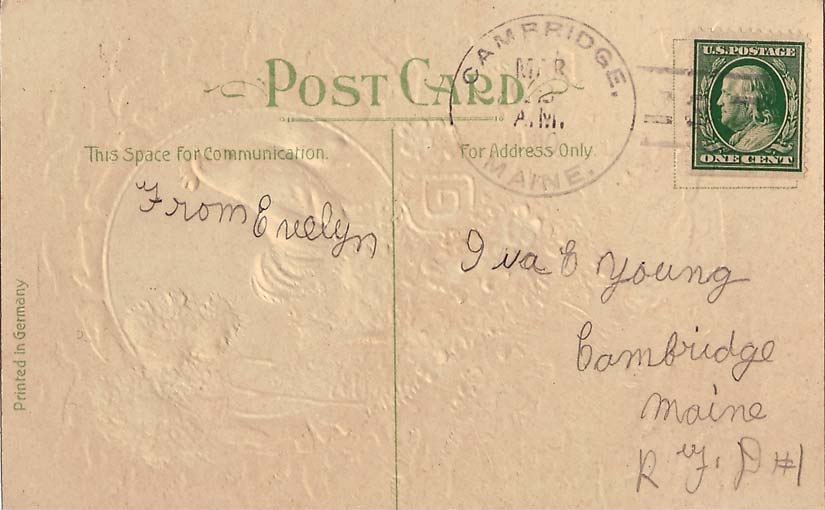 POST CARD
This Space For Communication.
For Address Only.
CAMBRIDGE,
MAR
A.M.
MAINE.
U.S. POSTAGE
ONE CENT
From Evelyn
Iva E Young
Cambridge
Maine
R F. D #1
Printed in Germany